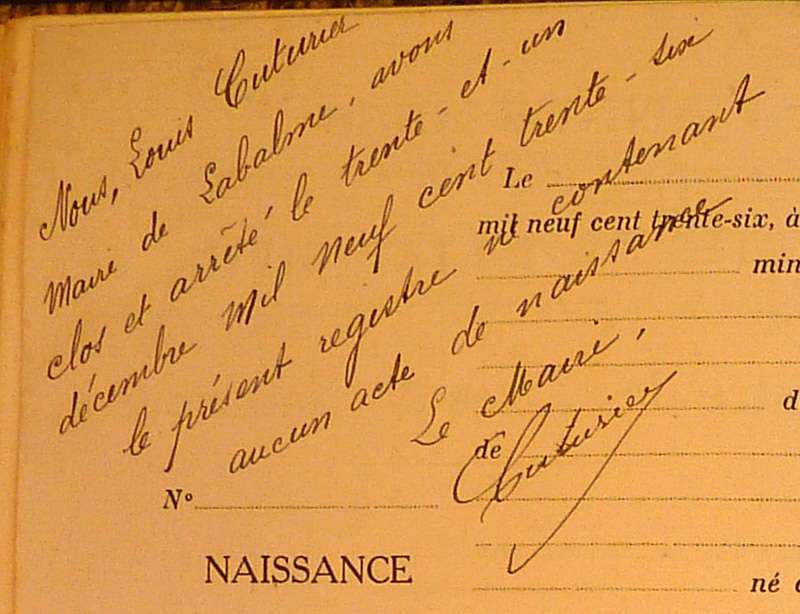 Nous, Louis Cuturier
Maire de Labalme, avons
clos et arrêté le trente-et-un
décembre mil neuf cent trente-six
le présent registre ne contenant
aucun acte de naissance
Le Maire,
Cuturier
Le
mil neuf cent trente-six, à
min
d
de
N°
NAISSANCE
né